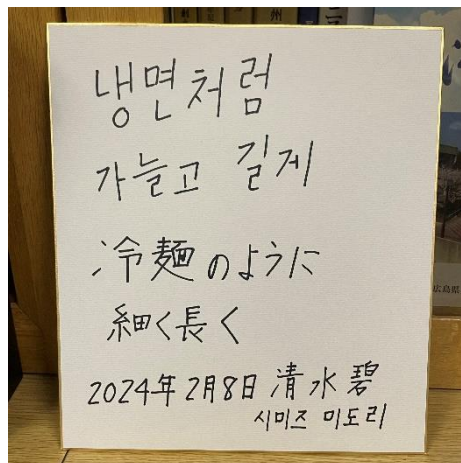 냉면처럼
가늘고 길게
冷麺のように
細く長く
2024年2月8日 清水 碧
시미즈 미도리
広島県